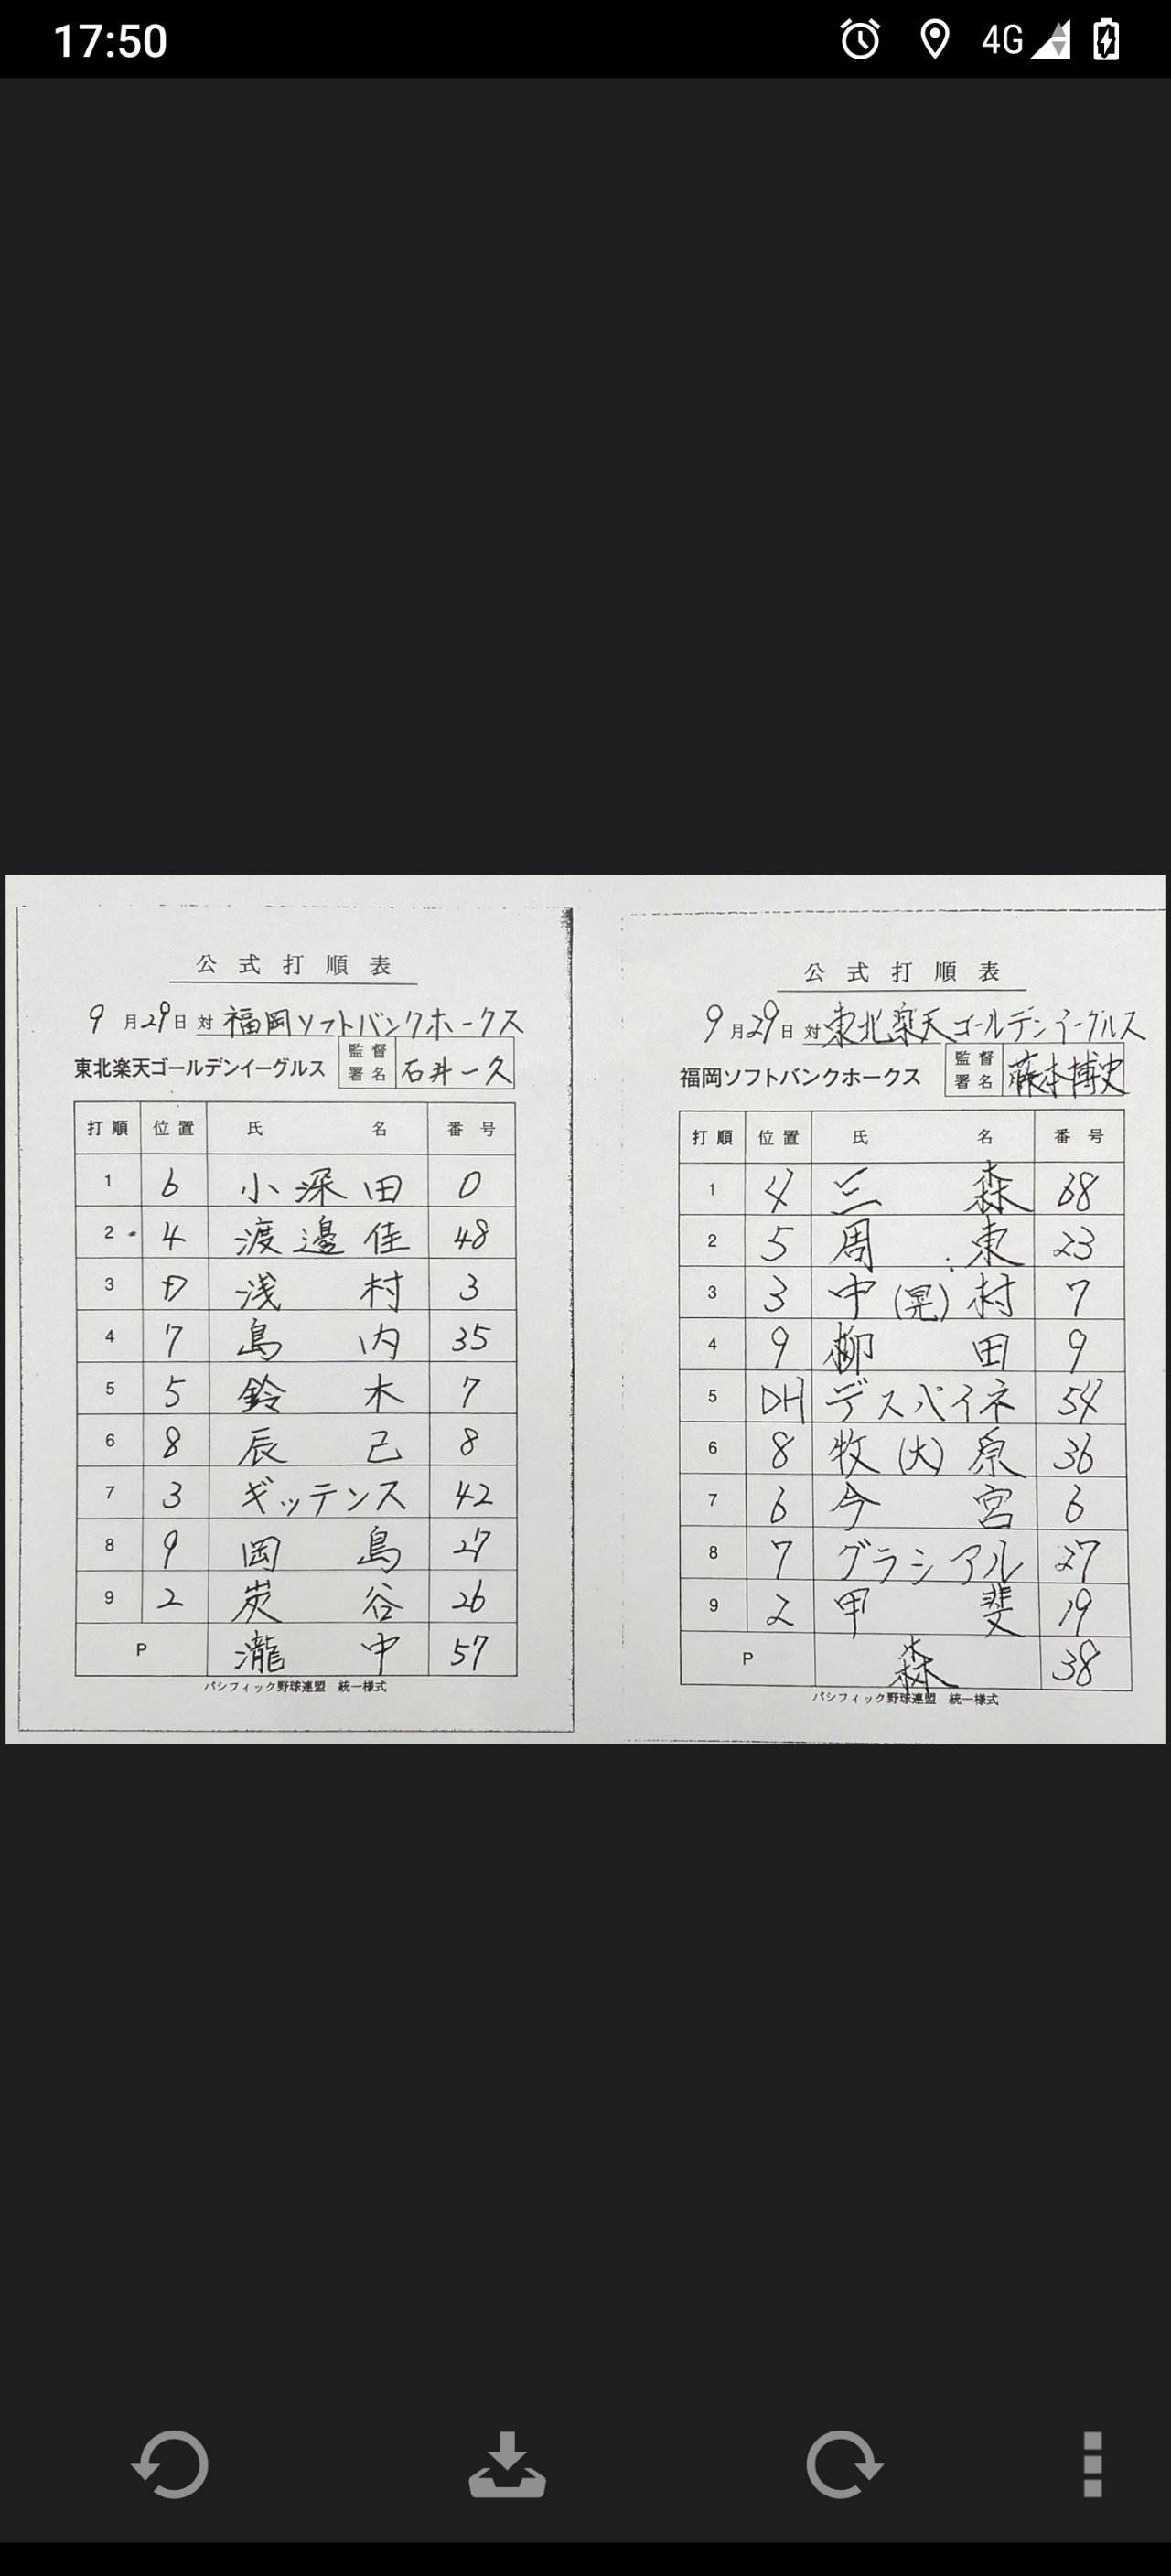 17:50
4G
公式打順表
9月29日 対 福岡ソフトバンクホークス
東北楽天ゴールデンイーグルス 監督署名 石井一久
打順 位置 氏名 番号
1 6 小深田 0
2 4 渡邊佳 48
3 D 浅村 3
4 7 島内 35
5 5 鈴木 7
6 8 辰己 8
7 3 ギッテンス 42
8 9 岡島 27
9 2 炭谷 26
P 瀧中 57
パシフィック野球連盟 統一様式
公式打順表
9月29日 対 東北楽天ゴールデンイーグルス
福岡ソフトバンクホークス 監督署名 藤本博史
打順 位置 氏名 番号
1 4 三森 68
2 5 周東 23
3 3 中(晃)村 7
4 9 柳田 9
5 DH デスパイネ 54
6 8 牧(大)原 36
7 6 今宮 6
8 7 グラシアル 27
9 2 甲斐 19
P 森 38
パシフィック野球連盟 統一様式